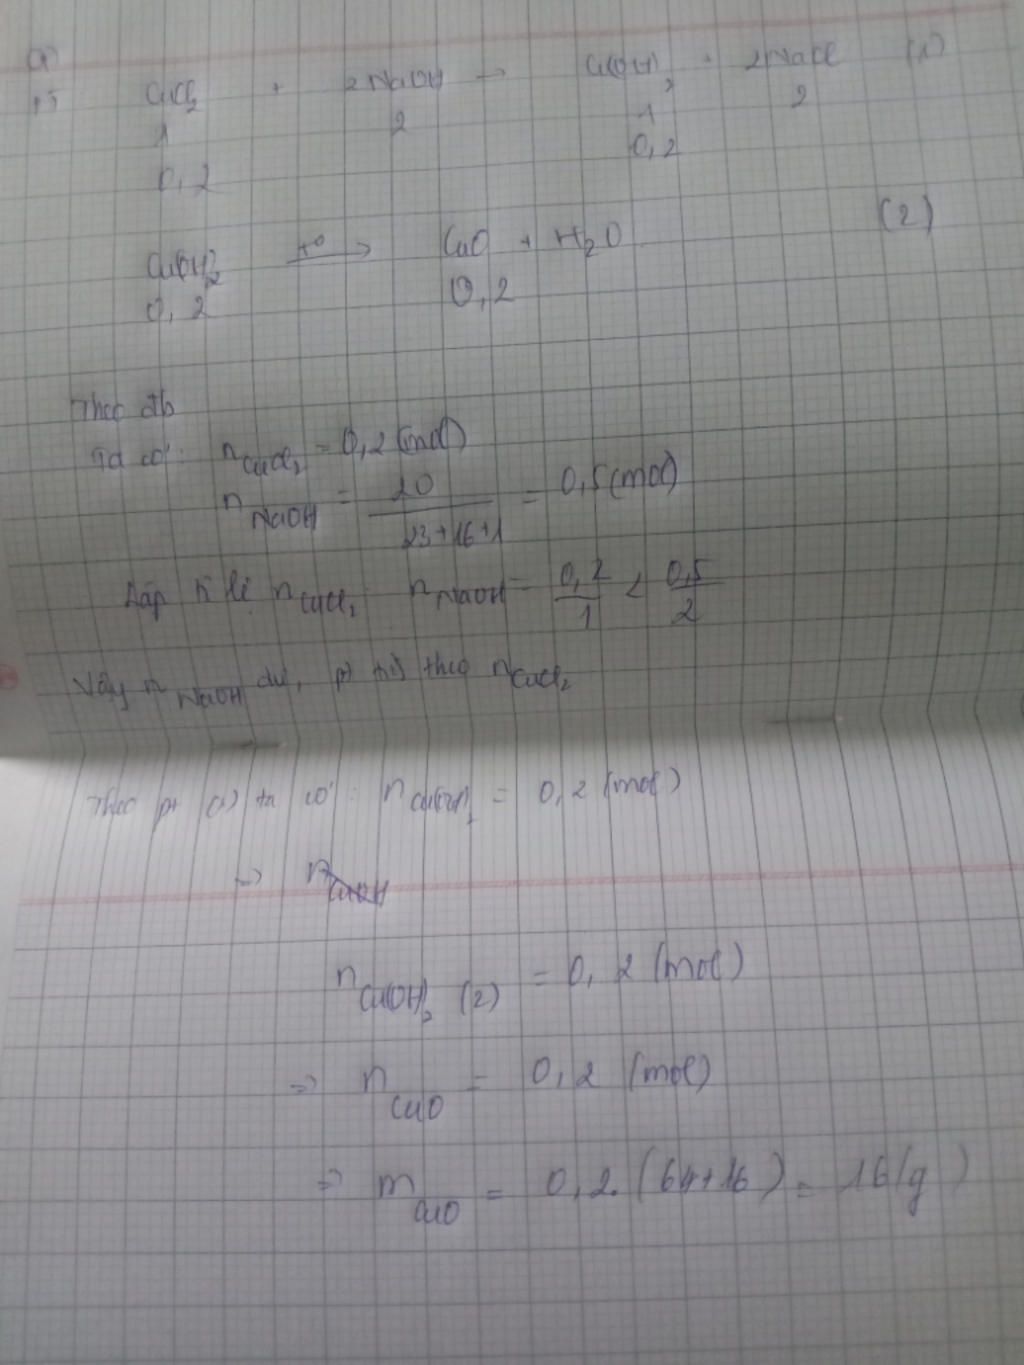 a)
PT CuCl2 + 2NaOH → Cu(OH)2 + 2NaCl (1)
1 2 1 2
0,2 0,2
Cu(OH)2 t° → CuO + H2O (2)
0,2 0,2
Theo đb
Ta có: nCuCl2 = 0,2 (mol)
nNaOH = 20 / 23+16+1 = 0,5 (mol)
Lập tỉ lệ nCuCl2 nNaOH = 0,2/1 < 0,5/2
Vậy nNaOH dư, theo nCuCl2
Theo pt (1) ta có: nCu(OH)2 = 0,2 (mol)
⇒ nCuOH
nCu(OH)2 (2) = 0,2 (mol)
⇒ nCuO = 0,2 (mol)
⇒ mCuO = 0,2.(64+16) = 16(g)